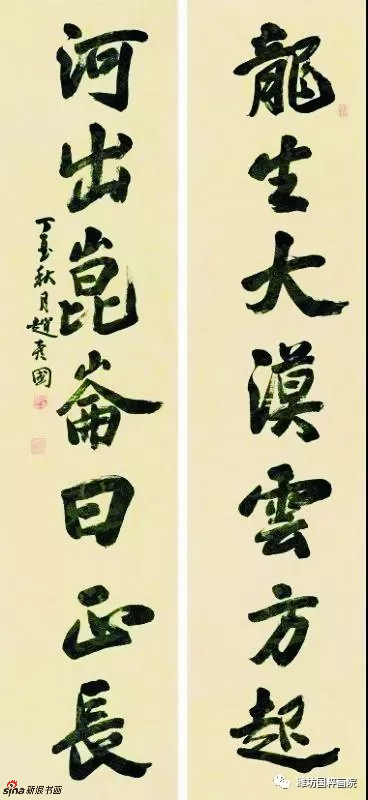 龍生大漠雲方起
河出崑崙日正長
丁 秋月趙 國
sina 新浪书画
潍坊国粹画院